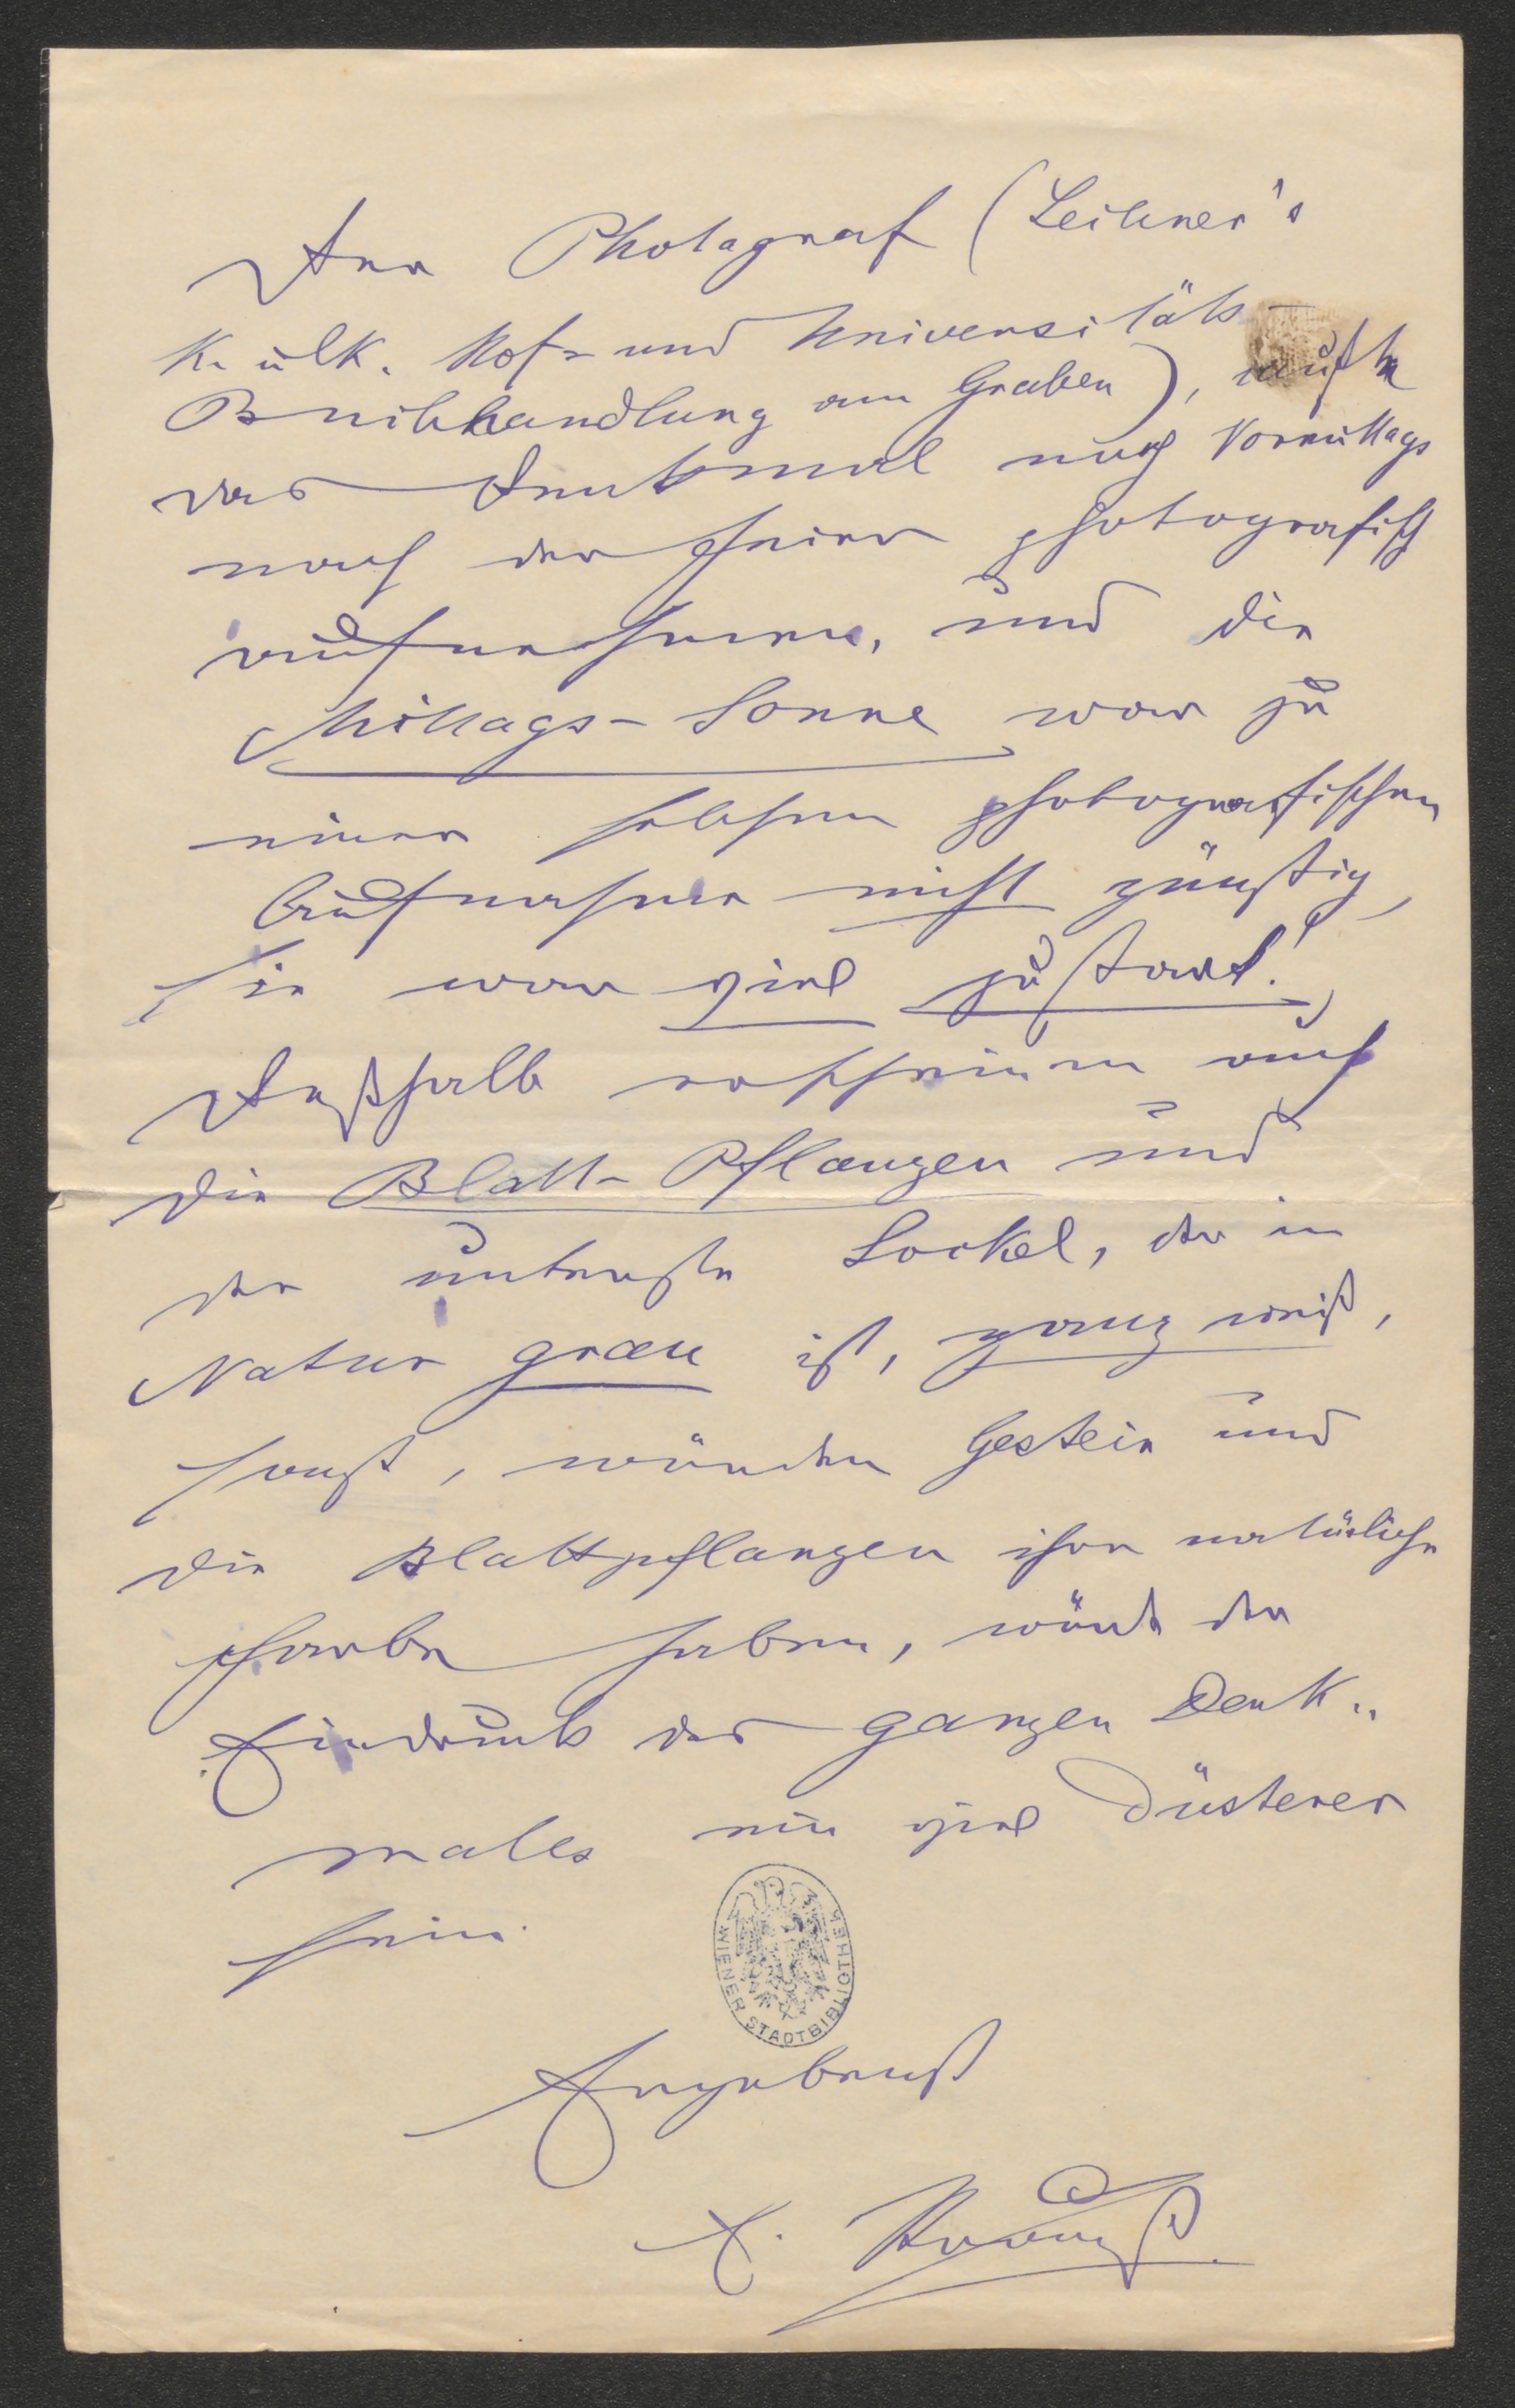 Der Photograf (Lechner's
K. u. K. Hof- und Universitäts-
Buchhandlung am Graben), mußte
das Denkmal noch Vormittags
nach der Feier photografisch
aufnehmen, und die
Mittags-Sonne war zu
einer solchen photografischen
Aufnahme nicht günstig,
sie war viel zu stark!
Deßhalb erscheinen auch
die Blatt-Pflanzen und
der unterste Sockel, der in
Natur grau ist, ganz weiß,
sonst, würden Gestein und
die Blattpflanzen ihre natürliche
Farbe haben, würde der
Eindruck des ganzen Denk-
males ein viel düsterer
sein.
WIENER STADTBIBLIOTHEK
Ergebenst